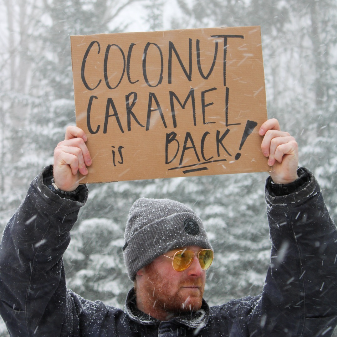 COCONUT
CARAMEL
is BACK!